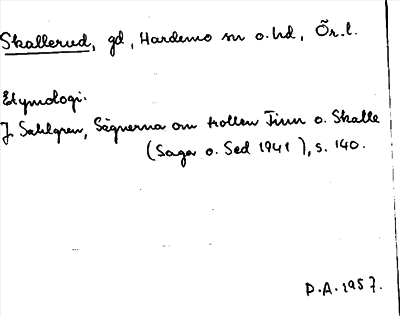 Skallerud, gd, Hardemo sn o. hd, Ör. l.
Etymologi:
J. Sahlgren, Sägnerna om trollen Finn o. Skalle
(Saga o. Sed 1941), s. 140.
P.A. 1957.